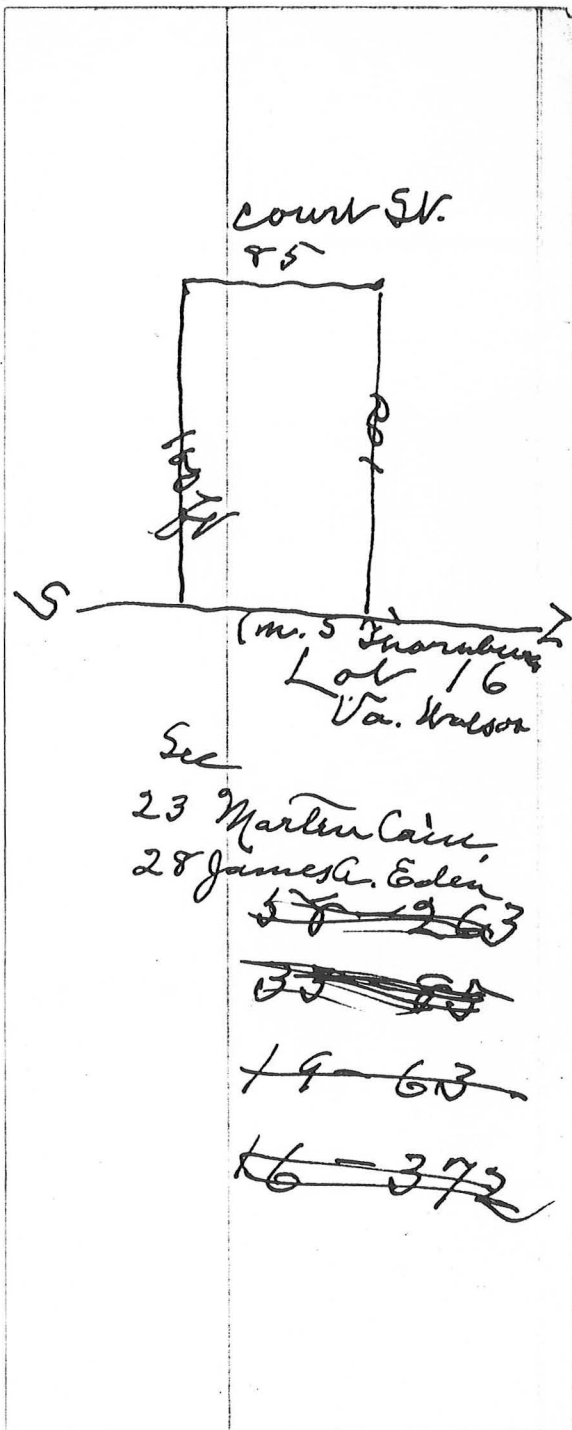 Court St.
85
S
(m. S Thornburg
Lot 16
Va. Watson
See
23 Martin Cain,
28 James A. Eden
58 - 263
33 - 85
19 - 63
16 - 372